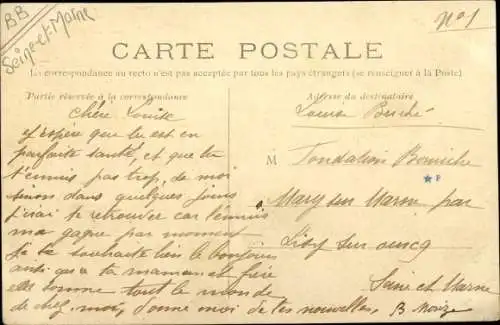 BB
Seine-et-Marne
No 1
CARTE POSTALE
La correspondance au recto n'est pas acceptée par tous les pays étrangers (se renseigner à la Poste)
Partie réservée à la correspondance
Adresse du destinataire
Chère Louise
j'espère que tu est en
parfaite santé, et que tu
t'ennuis pas trop, de moi
sinon dans quelques jours
j'irai te retrouver car l'ennuis
ma gagne par moment
je te souhaite bien le bonjour
ainsi qu'a ta maman et faire
elle bonne tout le monde
de chez moi, donne moi de tes nouvelles,
Louise
M Fondation
à Mary sur Marne par
Lisy sur ourcq
Seine et Marne